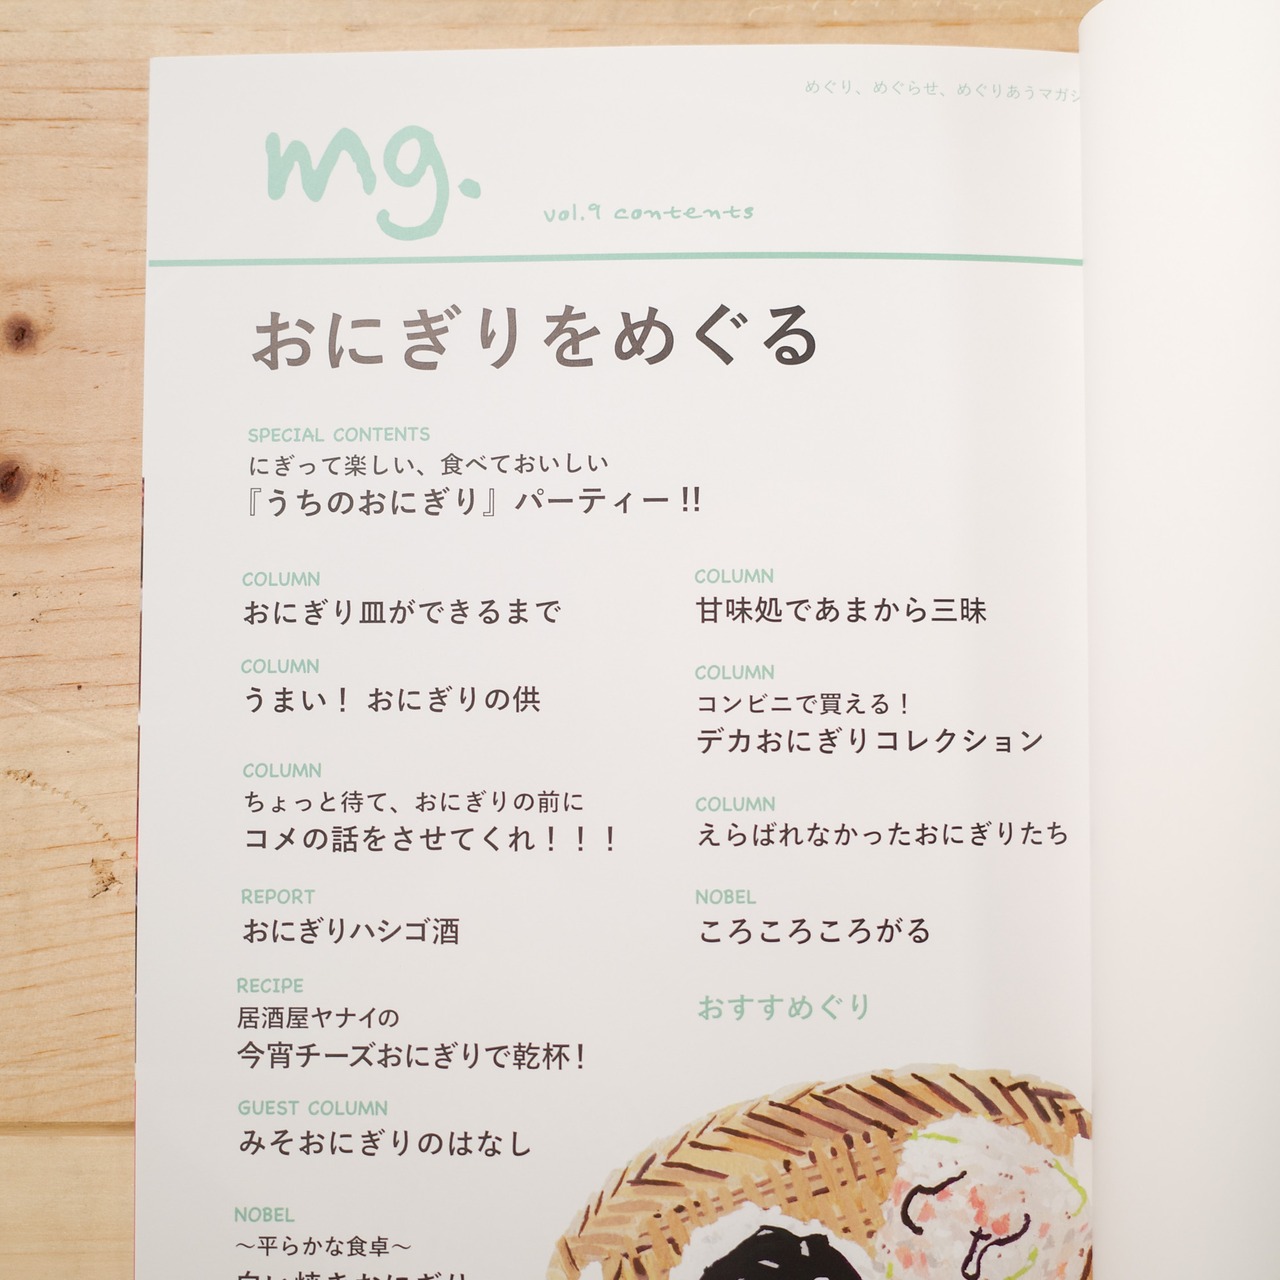 めぐり、めぐらせ、めぐりあうマガジ
mg.
vol.9 contents
おにぎりをめぐる
SPECIAL CONTENTS
にぎって楽しい、食べておいしい
『うちのおにぎり』パーティー!!
COLUMN
おにぎり皿ができるまで
COLUMN
うまい！ おにぎりの供
COLUMN
ちょっと待て、おにぎりの前に
コメの話をさせてくれ！！！
REPORT
おにぎりハシゴ酒
RECIPE
居酒屋ヤナイの
今宵チーズおにぎりで乾杯！
GUEST COLUMN
みそおにぎりのはなし
NOBEL
〜平らかな食卓〜
COLUMN
甘味処であまから三昧
COLUMN
コンビニで買える！
デカおにぎりコレクション
COLUMN
えらばれなかったおにぎりたち
NOBEL
ころころころがる
おすすめぐり